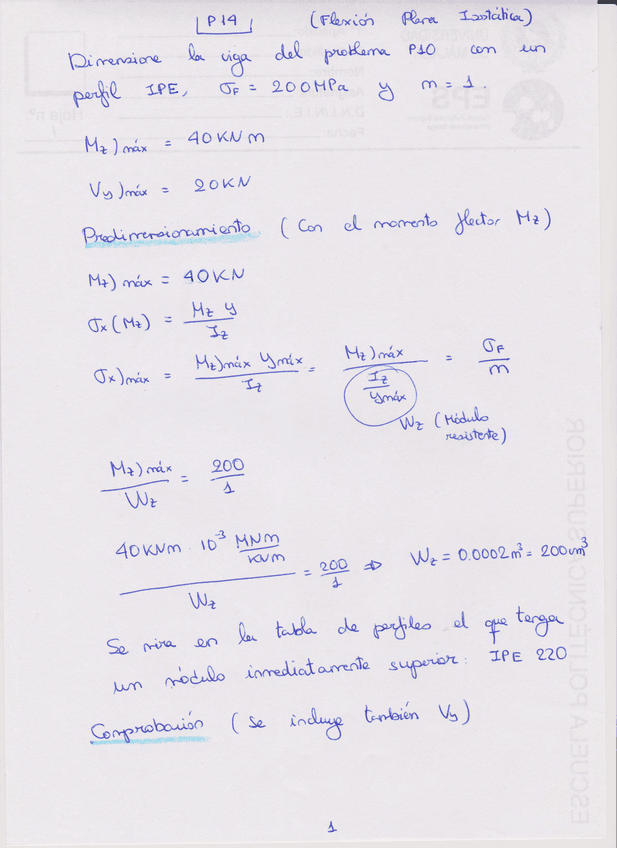 P14 (Flexión Plana Isostática)
Dimensione la viga del problema P10 con un
perfil IPE, σF = 200MPa y m = 1.
Mz)máx = 40KNm
Vy)máx = 20KN
Predimensionamiento (Con el momento flector Mz)
Mz)máx = 40KN
σx(Mz) = Mz y / Iz
σx)máx = Mz)máx ymáx / Iz = Mz)máx / (Iz / ymáx) = σF / m
Wz (Módulo
resistente)
Mz)máx / Wz = 200 / 1
40KNm · 10⁻³ MNm/KNm / Wz = 200 / 1 ⇒ Wz = 0.0002m³ = 200cm³
Se mira en la tabla de perfiles el que tenga
un módulo inmediatamente superior: IPE 220
Comprobación (Se incluye también Vy)
1
ESCUELA POLITÉCNICA SUPERIOR
EPS
Hoja nº:
Fecha: